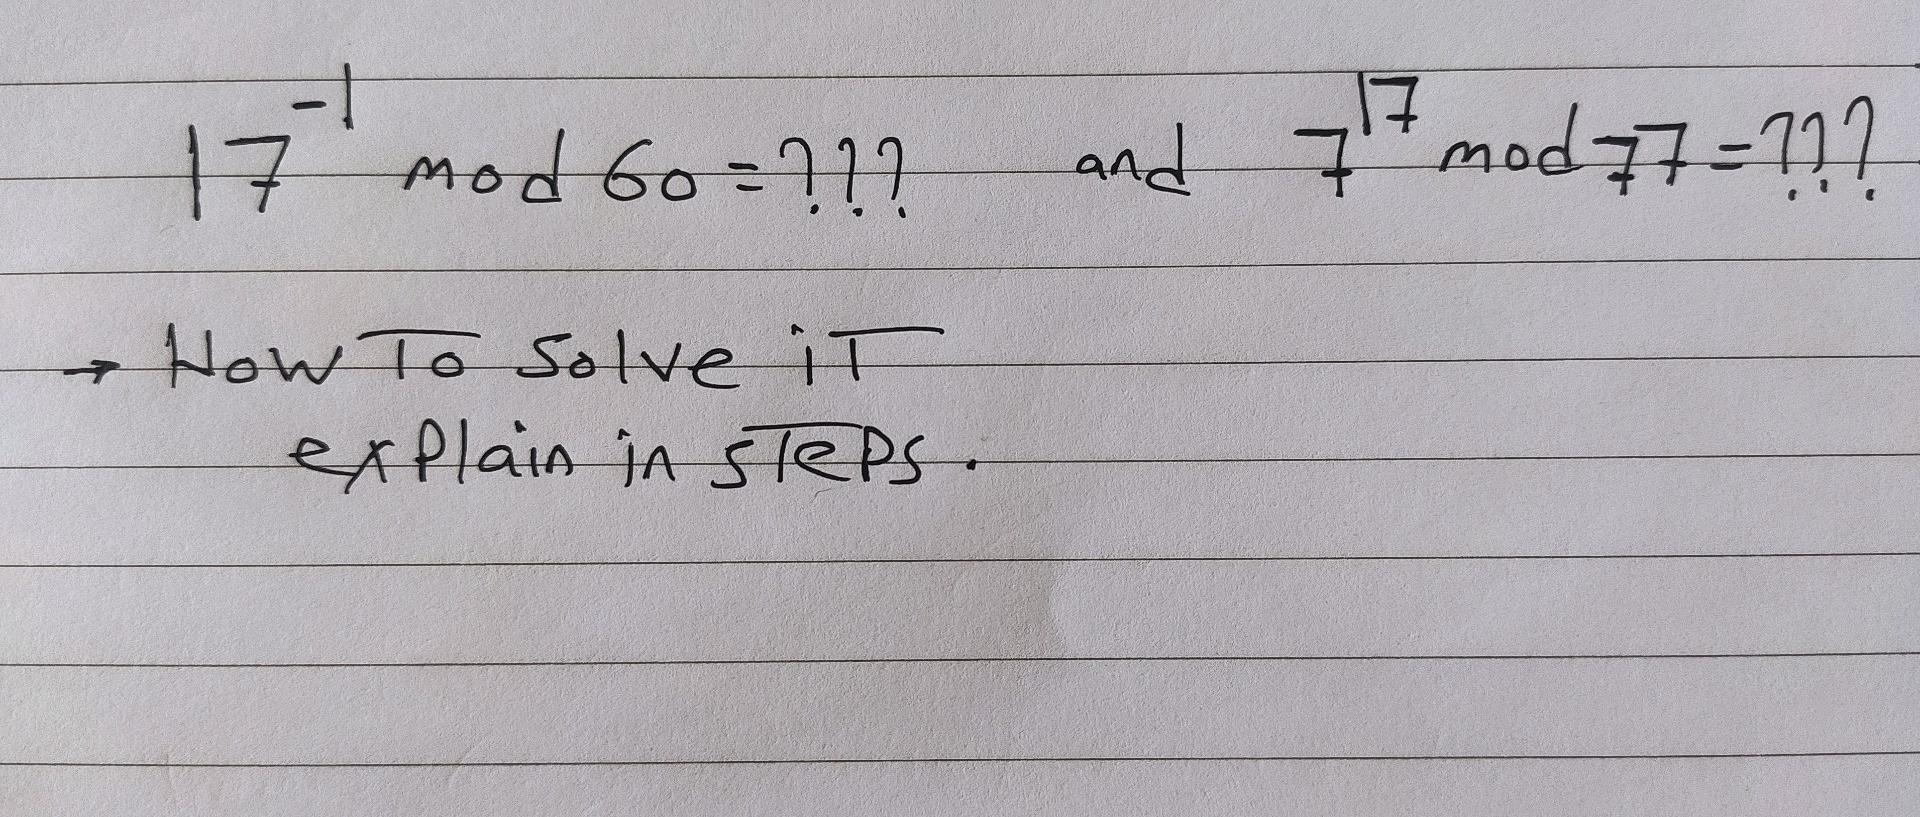 17⁻¹ mod 60 = ??? and 7¹⁷ mod 77 = ???
→ How To Solve iT
explain in steps.